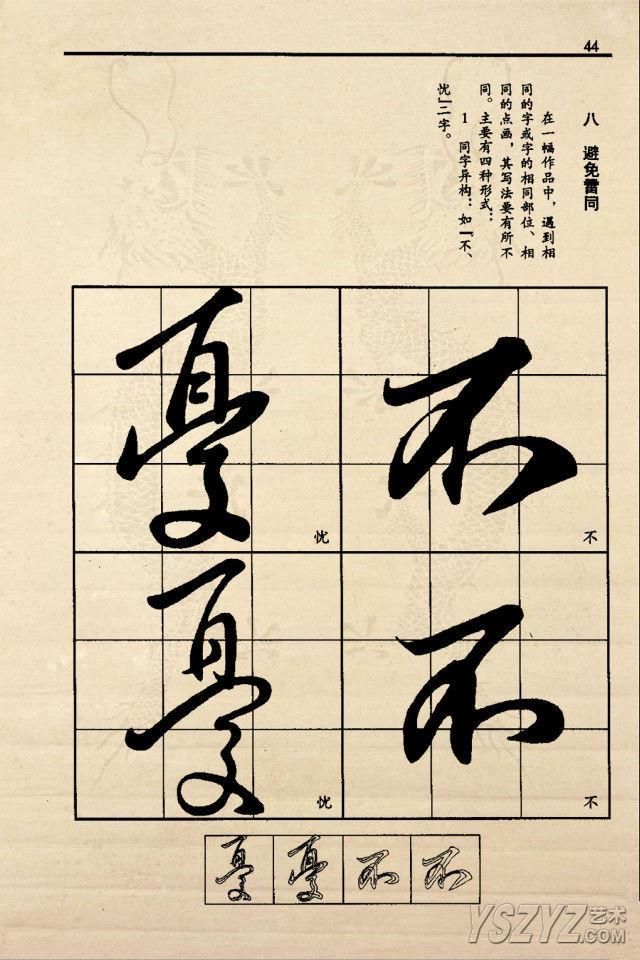 44
八 避免雷同
在一幅作品中，遇到相
同的字或字的相同部位、相
同的点画，其写法要有所不
同。主要有四种形式：
1 同字异构：如「不、
忧」二字。
不
不
不
不
憂
忧
憂
忧
憂 憂 不 不
YSZYZ艺术
.COM